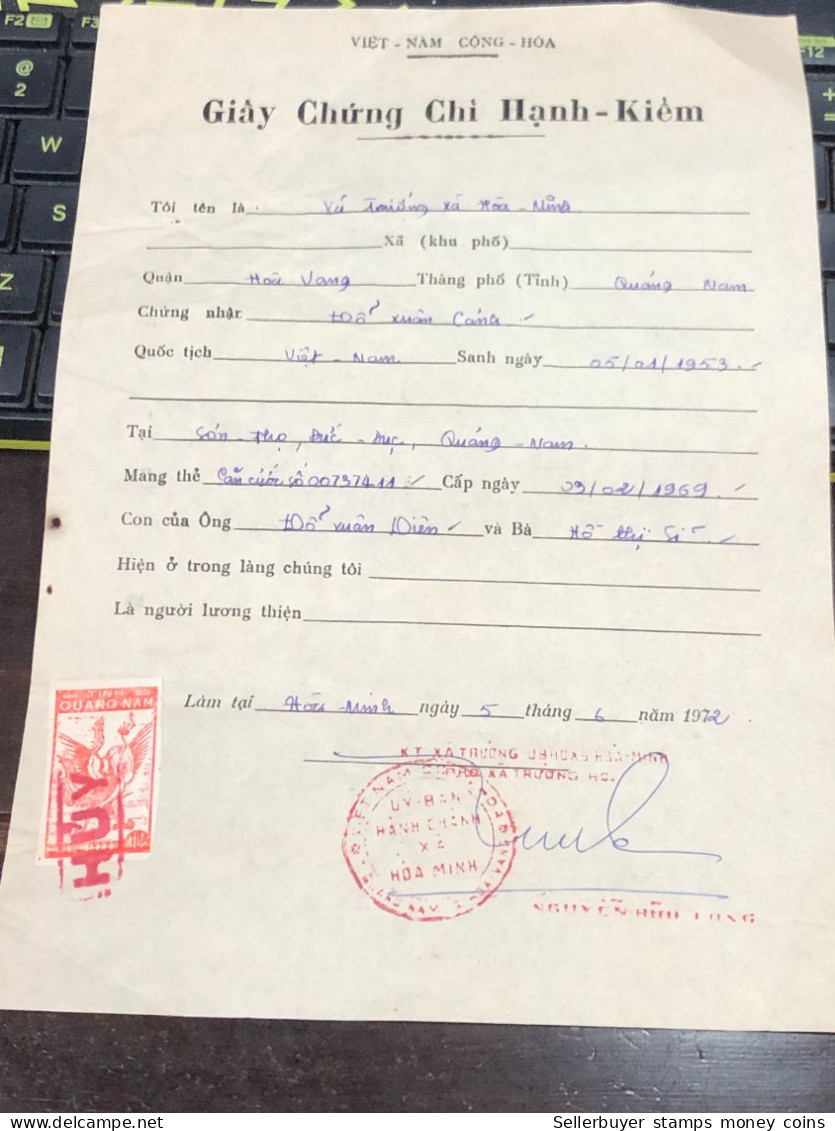 F2
F3
@
2
W
S
Z
12
+
=
VIỆT - NAM CỘNG - HÒA
Giấy Chứng Chỉ Hạnh - Kiểm
Tôi tên là Xã Trưởng xã Hòa - Minh
Xã (khu phố)
Quận Hoà Vang Thành phố (Tỉnh) Quảng Nam
Chứng nhận Đỗ xuân
Quốc tịch Việt - Nam Sanh ngày 05/01/1953
Tại Sơn - Thọ, Đức - Dục, Quảng - Nam.
Mang thẻ Căn cước số 00737411 Cấp ngày 03/02/1969
Con của Ông Đỗ xuân Diên và Bà Hồ thị
Hiện ở trong làng chúng tôi
Là người lương thiện
Làm tại Hòa - Minh ngày 5 tháng 6 năm 1972
TỈNH
QUANG-NAM
HUY
KT XÃ TRƯỞNG UBHCXB HOÀ-MINH
XÃ TRƯỞNG HC.
VIỆT NAM
UY-BAN
HÀNH CHÁNH
XÃ
HÒA MINH
QUANG NAM
NGUYỄN-HỮU
delcampe.net
Sellerbuyer stamps money coins